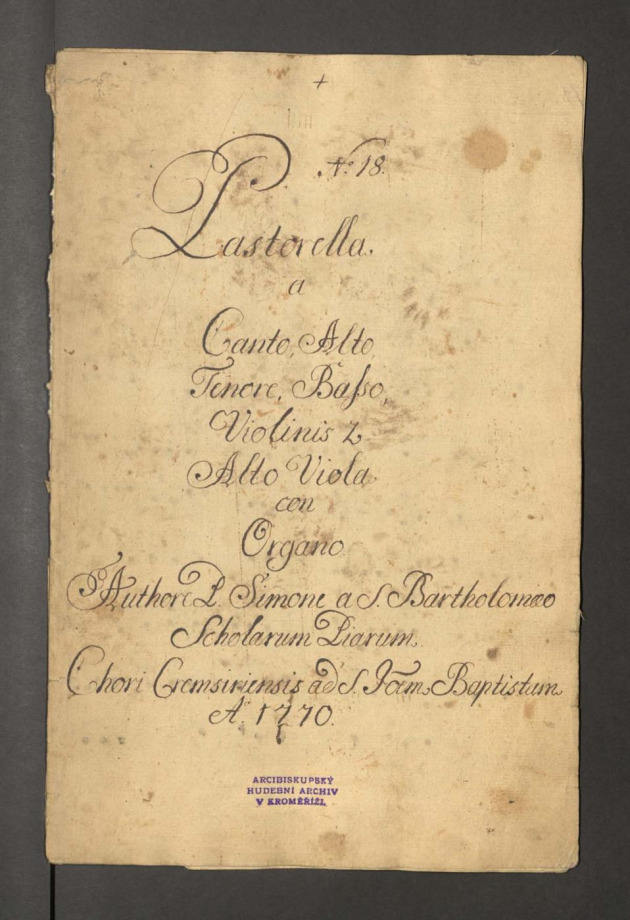 +
No 18.
Pastorella.
a
Canto, Alto,
Tenore, Basso,
Violinis 2
Alto Viola
con
Organo
Authore P. Simone a S. Bartholomæo
Scholarum Piarum.
Chori Cremsiriensis ad S. Joēm Baptistam
Ao 1770.
ARCIBISKUPSKÝ
HUDEBNÍ ARCHIV
V KROMĚŘÍŽI.